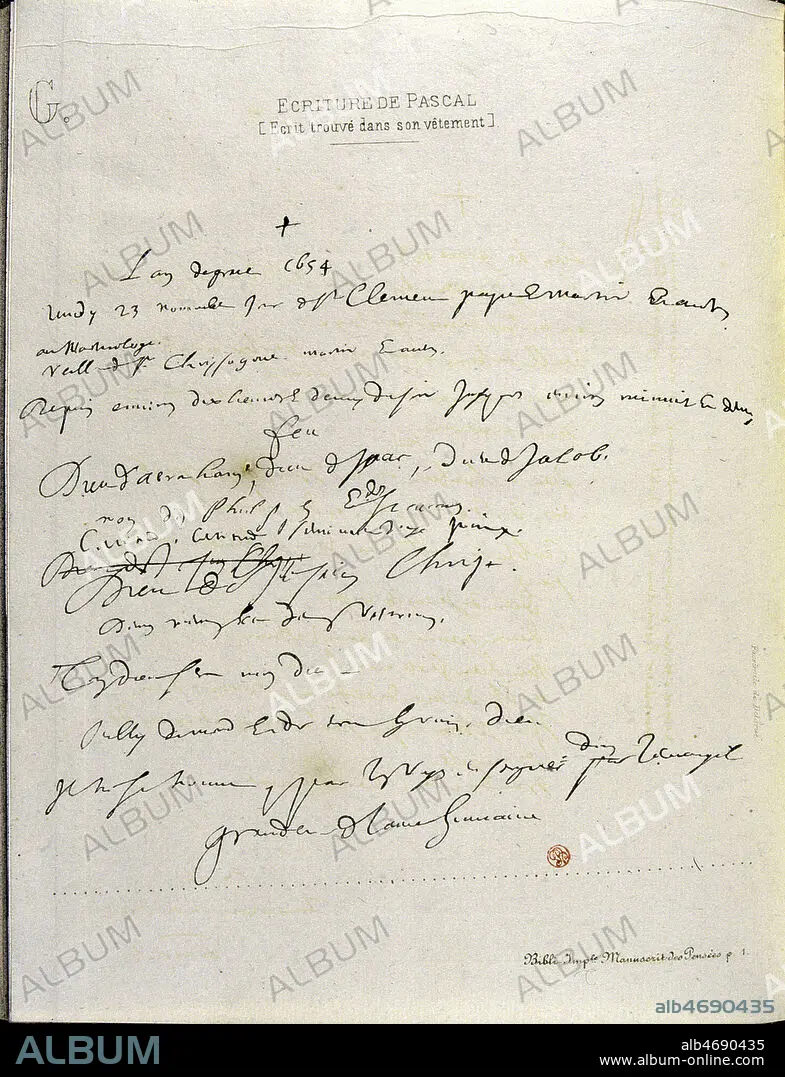 G.
ECRITURE DE PASCAL
[Ecrit trouvé dans son vêtement]
L'an de grace 1654
Lundy 23 novembre jour de St Clement pape et martir et autres
au Martirologe.
veille de St Chrysogone martir et autres.
Depuis environ dix heures et demy du soir jusques environ minuit et demy
feu
Dieu d'Abraham, dieu d'Isaac, dieu de Jacob.
non des Philosophes et des scavans.
Certitude, certitude, sentiment, joye, paix.
Dieu de Jesus Christ
Dieu de Jesus Christ.
Deum meum et deum vestrum.
Ton dieu sera mon dieu
oubly du monde et de tout hormis dieu
Il ne se trouve que par les voyes enseignées dans l'Evangile
grandeur de l'ame humaine
Bibl. Imple Manuscrit des Pensées p. 1.
ALBUM
alb4690435
ALBUM
alb4690435
www.album-online.com